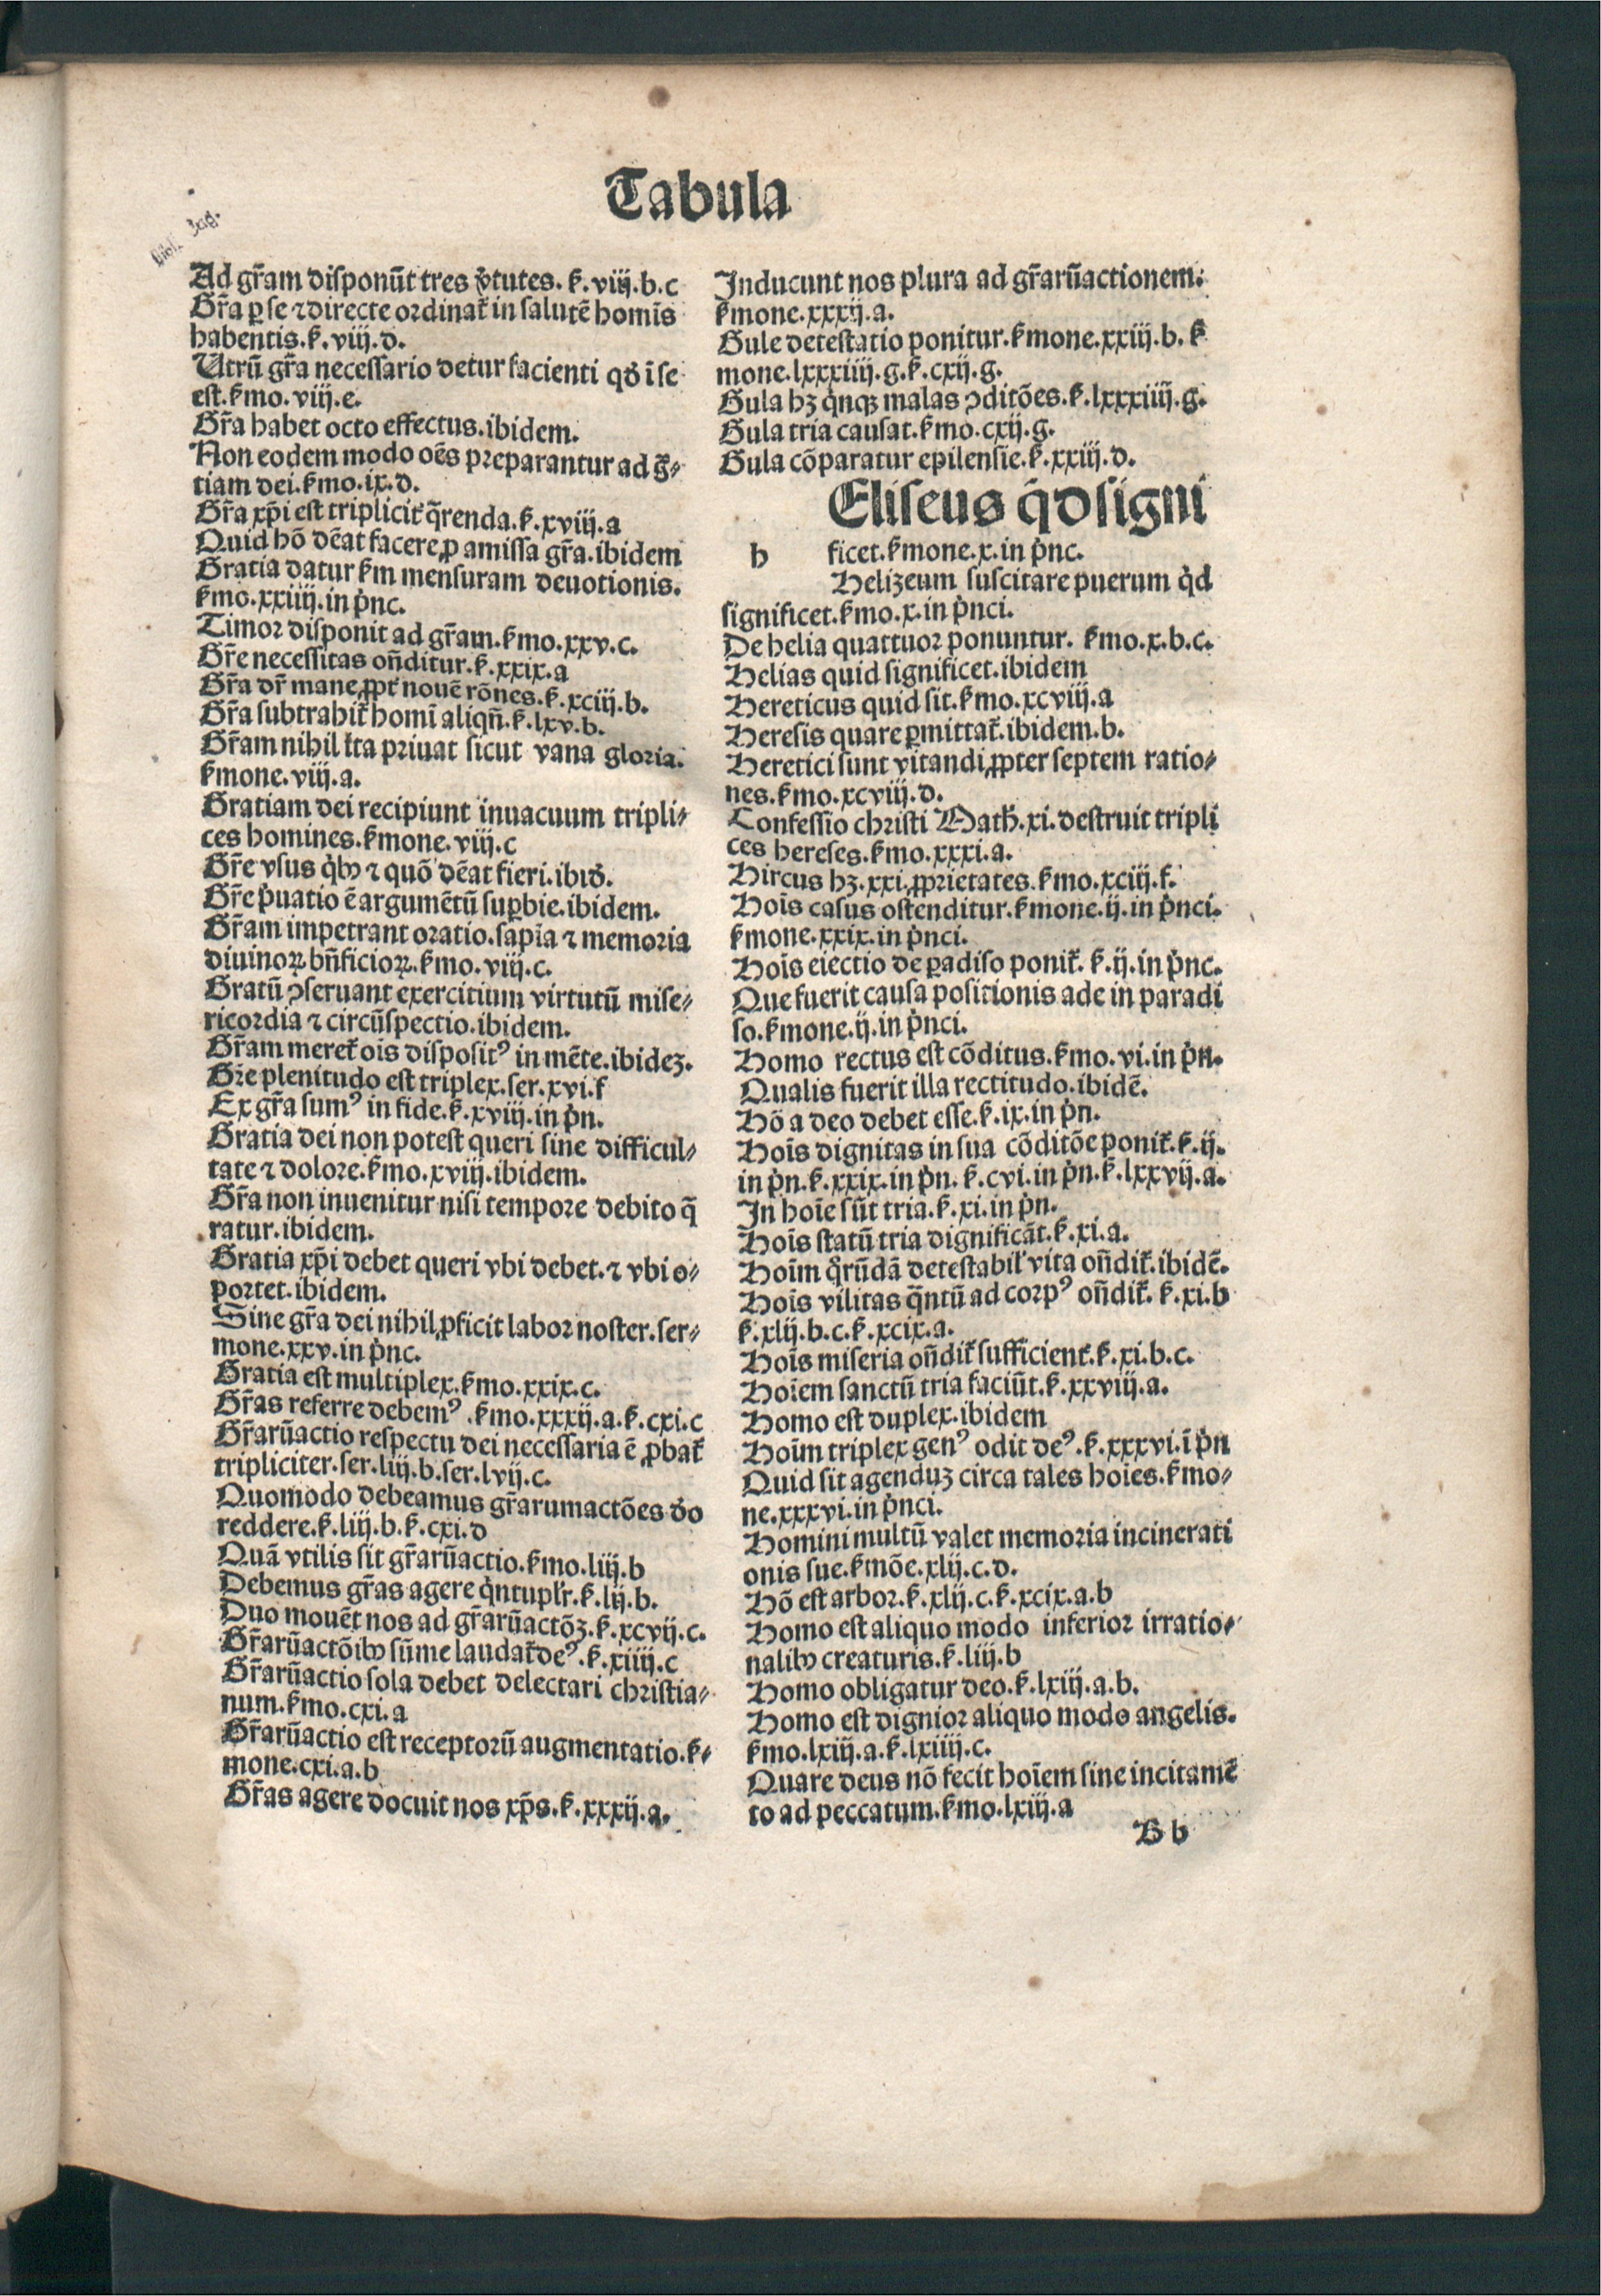 Tabula
Bibl. Jag.
Ad gr̄am disponūt tres v̓tutes. ẜ. viij.b.c
Gr̄a ꝑ se ⁊ directe ordinat᷑ in salutē homīs
habentis.ẜ.viij.d.
Utrū gr̄a necessario detur facienti qd̓ ī se
est.ẜmo.viij.e.
Gr̄a habet octo effectus.ibidem.
Non eodem modo oēs preparantur ad gr̄⸗
tiam dei.ẜmo.ix.d.
Gr̄a xp̄i est triplicit᷑ q̄renda.ẜ.xviij.a
Quid hō dēat facere ꝓ amissa gr̄a.ibidem
Gratia datur ẜm mensuram deuotionis.
ẜmo.xxiiij.in pͥnc.
Timor disponit ad gr̄am.ẜmo.xxv.c.
Gr̄e necessitas on̄ditur.ẜ.xxix.a
Gr̄a dr̄ mane ꝓpt᷑ nouē rōnes.ẜ.xciij.b.
Gr̄a subtrahit᷑ homī aliqn̄.ẜ.lxv.b.
Gr̄am nihil ita priuat sicut vana gloria.
ẜmone.viij.a.
Gratiam dei recipiunt inuacuum tripli⸗
ces homines.ẜmone.viij.c
Gr̄e vsus qͥbꝰ ⁊ quō dēat fieri.ibid̓.
Gr̄e pͥuatio ē argumētū suꝑbie.ibidem.
Gr̄am impetrant oratio.sapīa ⁊ memoria
diuinoꝝ bn̄ficioꝝ.ẜmo.viij.c.
Gratū ꝯseruant exercitium virtutū mise⸗
ricordia ⁊ circūspectio.ibidem.
Gr̄am meret᷑ oīs disposit⁹ in mēte.ibideꝫ.
Gr̄e plenitudo est triplex.ser.xvi.f
Ex gr̄a sum⁹ in fide.ẜ.xviij.in pͥn.
Gratia dei non potest queri sine difficul⸗
tate ⁊ dolore.ẜmo.xviij.ibidem.
Gr̄a non inuenitur nisi tempore debito q̄
ratur.ibidem.
Gratia xp̄i debet queri vbi debet.⁊ vbi o⸗
portet.ibidem.
Sine gr̄a dei nihil ꝓficit labor noster.ser⸗
mone.xxv.in pͥnc.
Gratia est multiplex.ẜmo.xxix.c.
Gr̄as referre debem⁹ .ẜmo.xxxij.a.ẜ.cxi.c
Gr̄arūactio respectu dei necessaria ē ꝓbat᷑
tripliciter.ser.liij.b.ser.lvij.c.
Quomodo debeamus gr̄arumactōes do
reddere.ẜ.liij.b.ẜ.cxi.d
Quā vtilis sit gr̄arūactio.ẜmo.liij.b
Debemus gr̄as agere qͥntupl̓r.ẜ.lij.b.
Duo mouēt nos ad gr̄arūactōꝫ.ẜ.xcvij.c.
Gr̄arūactōibꝰ sūme laudat᷑ de⁹.ẜ.xiiij.c
Gr̄arūactio sola debet delectari christia⸗
num.ẜmo.cxi.a
Gr̄arūactio est receptorū augmentatio.ẜ⸗
mone.cxi.a.b
Gr̄as agere docuit nos xp̄s.ẜ.xxxij.a.
Inducunt nos plura ad gr̄arūactionem.
ẜmone.xxxij.a.
Gule detestatio ponitur.ẜmone.xxiij.b.ẜ
mone.lxxxiiij.g.ẜ.cxij.g.
Gula hꝫ qͥnqꝫ malas ꝯditōes.ẜ.lxxxiiij.g.
Gula tria causat.ẜmo.cxij.g.
Gula cōparatur epilensie.ẜ.xxiij.d.
Eliseus qͥdsigni
h
ficet.ẜmone.x.in pͥnc.
Helizeum suscitare puerum qͥd
significet.ẜmo.x.in pͥnci.
De helia quattuor ponuntur. ẜmo.x.b.c.
Helias quid significet.ibidem
Hereticus quid sit.ẜmo.xcviij.a
Heresis quare ꝑmittat᷑.ibidem.b.
Heretici sunt vitandi ꝓpter septem ratio⸗
nes.ẜmo.xcviij.d.
Confessio christi Math̓.xi.destruit tripli
ces hereses.ẜmo.xxxi.a.
Hircus hꝫ.xxi.ꝓprietates.ẜmo.xciij.f.
Hoīs casus ostenditur.ẜmone.ij.in pͥnci.
ẜmone.xxix.in pͥnci.
Hoīs eiectio de ꝑadiso ponit᷑. ẜ.ij.in pͥnc.
Que fuerit causa positionis ade in paradi
so.ẜmone.ij.in pͥnci.
Homo rectus est cōditus.ẜmo.vi.in pͥn.
Qualis fuerit illa rectitudo.ibidē.
Hō a deo debet esse.ẜ.ix.in pͥn.
Hoīs dignitas in sua cōditōe ponit᷑.ẜ.ij.
in pͥn.ẜ.xxix.in pͥn. ẜ.cvi.in pͥn.ẜ.lxxvij.a.
In hoīe sūt tria.ẜ.xi.in pͥn.
Hoīs statū tria dignificāt.ẜ.xi.a.
Hoīm qͦrūdā detestabil̓ vita on̄dit᷑.ibidē.
Hoīs vilitas q̄ntū ad corp⁹ on̄dit᷑. ẜ.xi.b
ẜ.xlij.b.c.ẜ.xcix.a.
Hoīs miseria on̄dit᷑ sufficient᷑.ẜ.xi.b.c.
Hoīem sanctū tria faciūt.ẜ.xxviij.a.
Homo est duplex.ibidem
Hoīm triplex gen⁹ odit de⁹.ẜ.xxxvi.ī pͥn
Quid sit agenduꝫ circa tales hoīes.ẜmo⸗
ne.xxxvi.in pͥnci.
Homini multū valet memoria incinerati
onis sue.ẜmōe.xlij.c.d.
Hō est arbor.ẜ.xlij.c.ẜ.xcix.a.b
Homo est aliquo modo inferior irratio⸗
nalibꝰ creaturis.ẜ.liij.b
Homo obligatur deo.ẜ.lxiij.a.b.
Homo est dignior aliquo modo angelis.
ẜmo.lxiij.a.ẜ.lxiiij.c.
Quare deus nō fecit hoīem sine incitamē
to ad peccatum.ẜmo.lxiij.a
B b